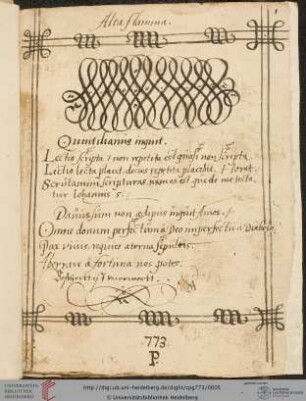 Alta flumina.
Quintilianus inquit.
Lectio scripta & non repetita est quasi non scripta
Lectio lecta placet, decies repetita placebit.
Scrutamini scripturas, nam est quae de me testa
tur Johannis 5.
Davus sum non inquit
Omne donum perfectum a Deo imperfectu a Diabolo
Pax vivis, requies aeterna sepultis.
a fortuna nos
773
P.
UNIVERSITÄTS-
BIBLIOTHEK
HEIDELBERG
http://digi.ub.uni-heidelberg.de/diglit/cpg773/0005
© Universitätsbibliothek Heidelberg